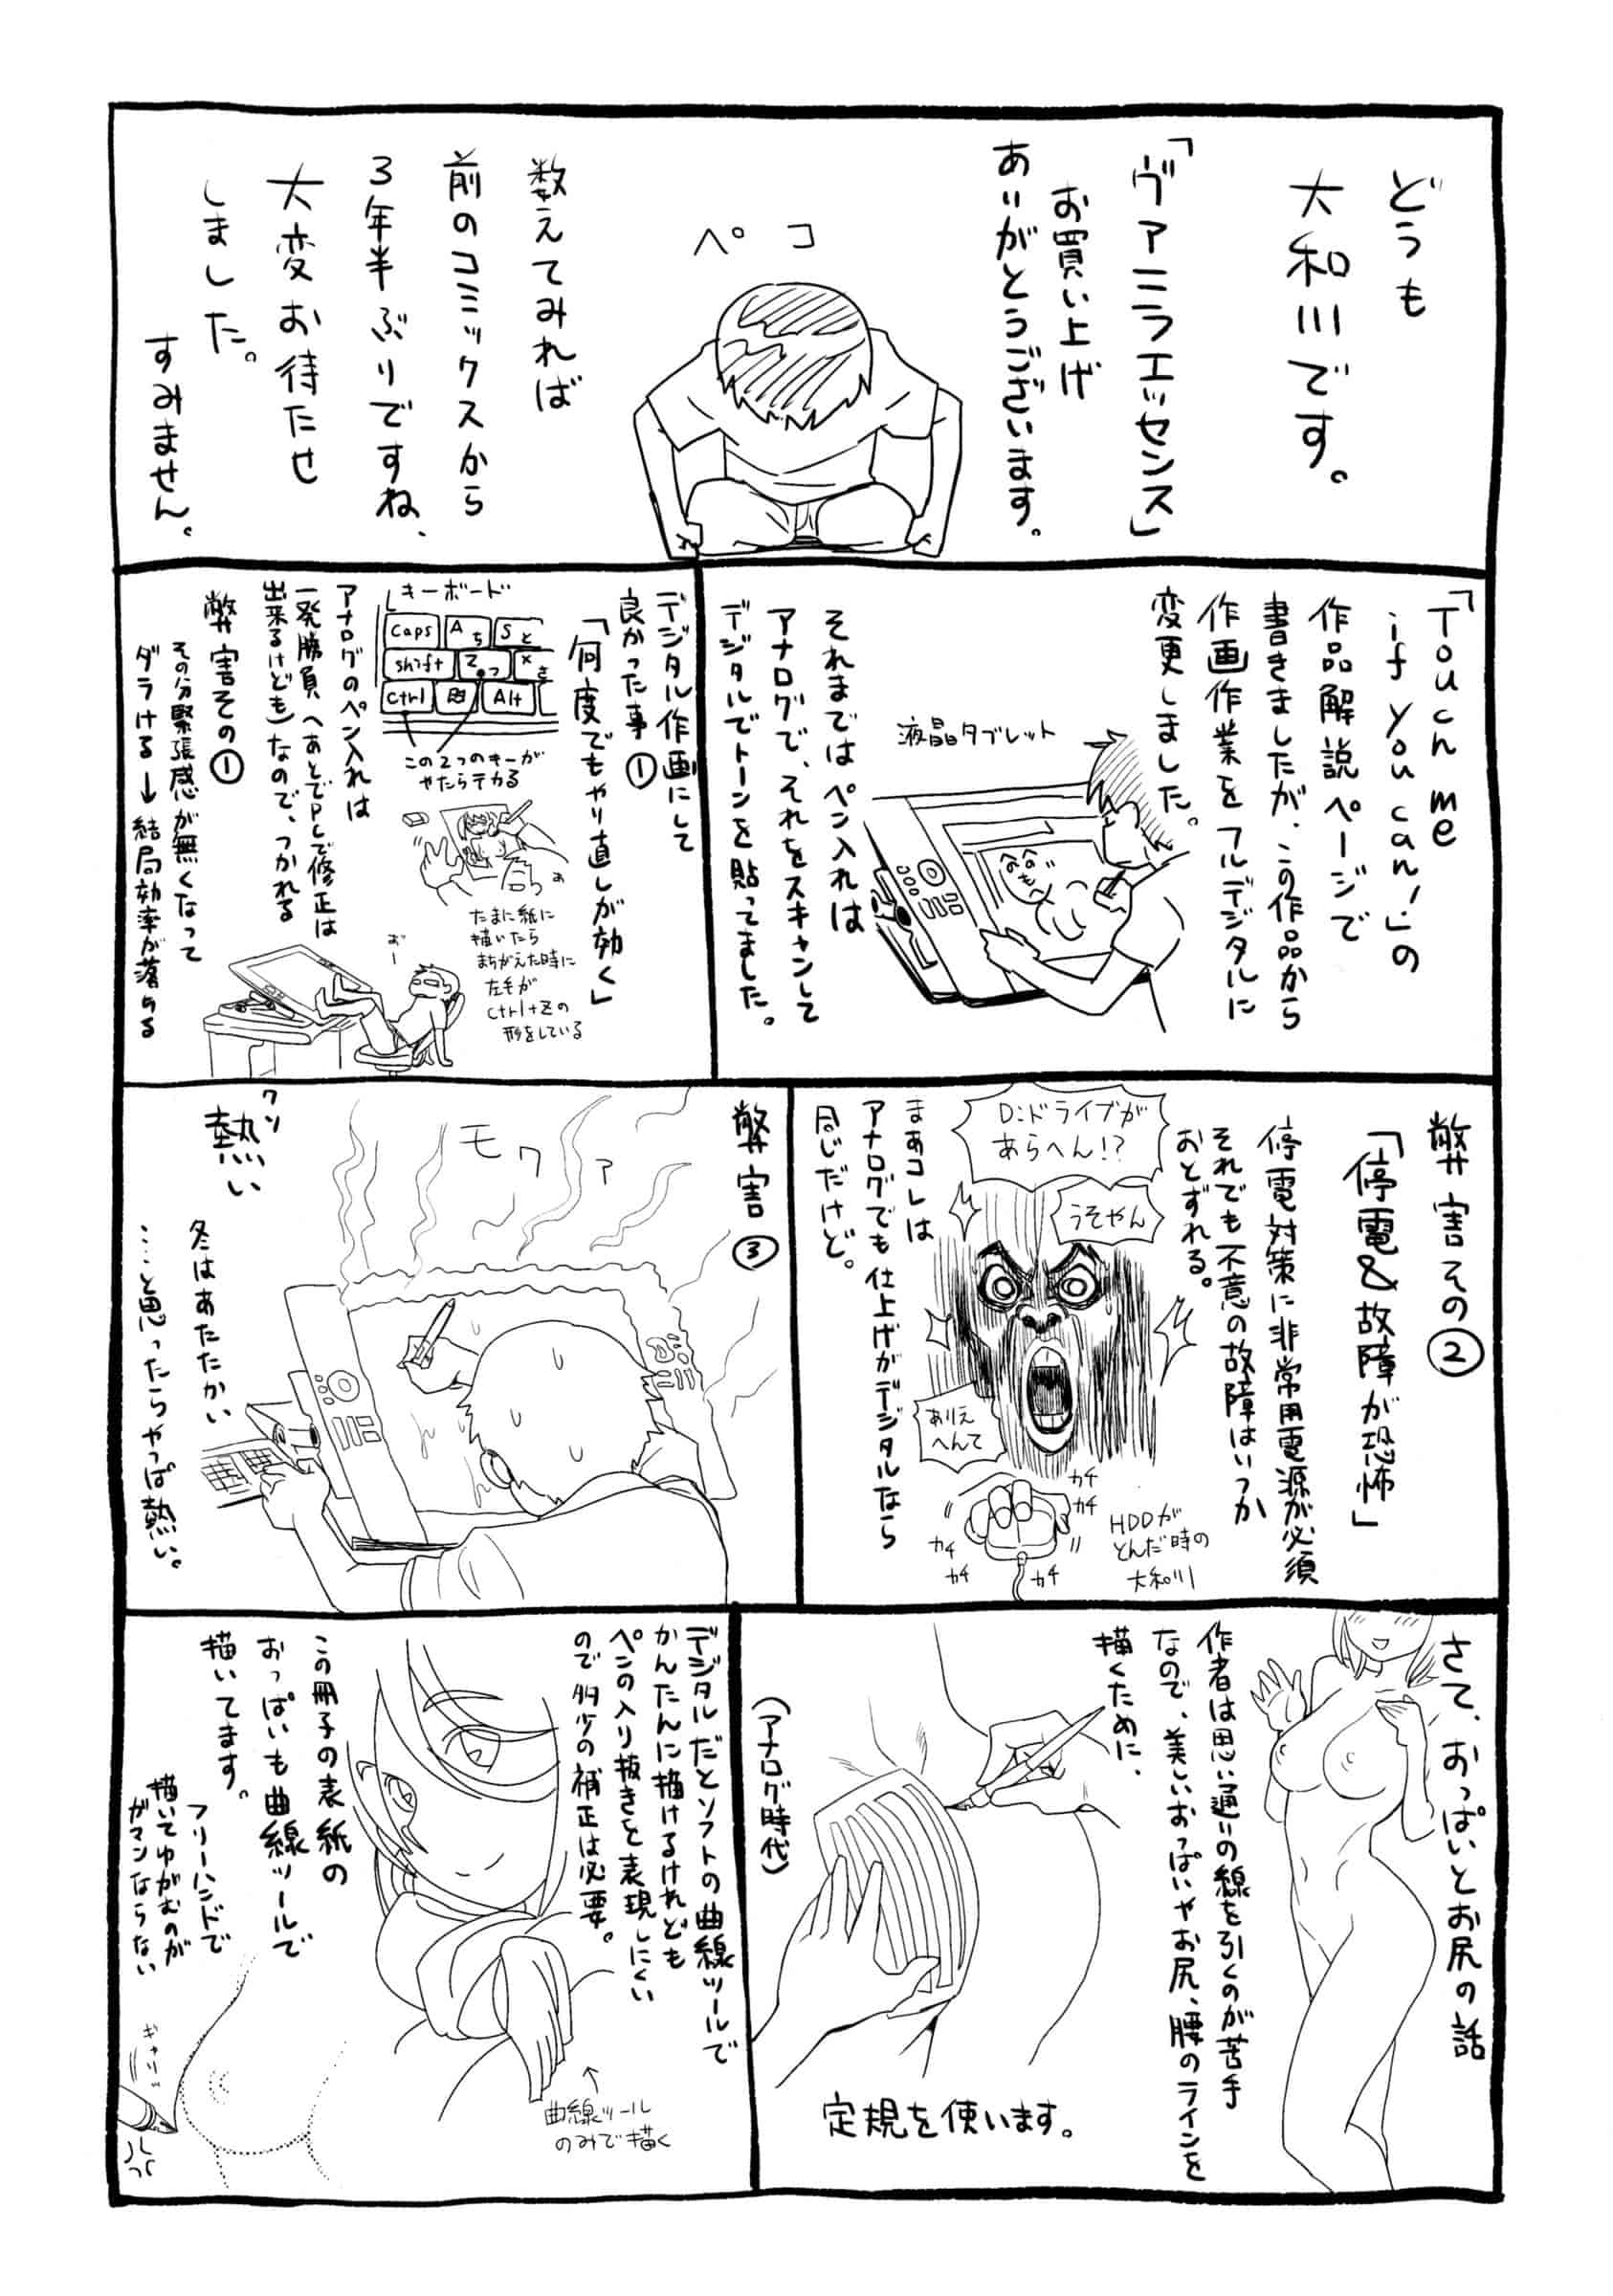 どうも
大和川です。
「ヴァニラエッセンス」
お買い上げ
ありがとうございます。
ペコ
数えてみれば
前のコミックスから
3年半ぶりですね、
大変お待たせ
しました。
すみません。
「Touch me
if you can!」の
作品解説ページで
書きましたが、この作品から
作画作業をフルデジタルに
変更しました。
液晶タブレット
それまではペン入れは
アナログで、それをスキャンして
デジタルでトーンを貼ってました。
デジタル作画にして
良かった事①
「何度でもやり直しが効く」
キーボード
Caps
A
ち
S
と
shift
Z
っ
X
さ
ctrl
Alt
この2つのキーが
やたらテカる
たまに紙に
描いたら
まちがえた時に
左手が
ctrl+Zの
形をしている
アナログのペン入れは
一発勝負(あとでPCで修正は
出来るけども)なので、つかれる
弊害その①
その分緊張感が無くなって
ダラける→結局効率が落ちる
弊害その②
「停電&故障が恐怖」
停電対策に非常用電源が必須
それでも不意の故障はいつか
おとずれる。
D:ドライブが
あらへん!?
うそやん
ありえ
へんて
カチ
カチ
カチ
カチ
カチ
HDDが
とんだ時の
大和川
まあコレは
アナログでも仕上げがデジタルなら
同じだけど。
弊害③
モワァ
クソ
熱い
冬はあたたかい
……と思ったらやっぱ熱い。
さて、おっぱいとお尻の話
作者は思い通りの線を引くのが苦手
なので、美しいおっぱいやお尻、腰のラインを
描くために、
(アナログ時代)
定規を使います。
デジタルだとソフトの曲線ツールで
かんたんに描けるけれども
ペンの入り抜きを表現しにくい
ので多少の補正は必要。
この冊子の表紙の
おっぱいも曲線ツールで
描いてます。
フリーハンドで
描いてゆがむのが
ガマンならない
↑
曲線ツール
のみで描く